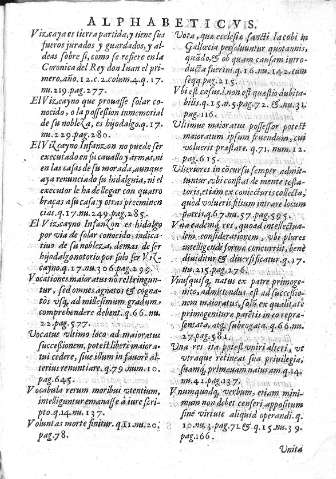 ALPHABETICVS.
Vizcaya es tierra partida, y tiene sus
fueros jurados y guardados, y al-
deas sobre si, como se refiere en la
Coronica del Rey don Iuan el pri-
mero, año. 12. c. 2. colum. 4. q. 17.
nu. 219. pag. 277.
El Vizcayno que prouasse solar co-
nocido, o la possession inmemorial
de su nobleza, es hijodalgo. q. 17.
nu. 229. pag. 280.
El Vizcayno Infanzon no puede ser
executado en su cauallo y armas, ni
en las casas de su morada, aunque
aya renunciado su hidalguia, ni el
executor le ha de llegar con quatro
braças a su casa y otras preeminen
cias. q. 17. nu. 249. pag. 285.
El Vizcayno Infanzon es hidalgo
por via de solar conocido, indica-
tiuo de su nobleza, demas de ser
hijodalgo notorio por solo ser Viz-
cayno. q. 17. nu. 306. pag. 299.
Vocationes maioratus nō restringun-
tur, sed omnes agnatos & cogna-
tos vsq, ad millesimum gradum
comprehendere debent. q. 66. nu.
22. pag. 577.
Vocatus vltimo loco ad maioratus
successionem, potest liberè maiora-
tui cedere, siue illum in fauorē al-
terius renuntiare. q. 79. num. 10.
pag. 645.
Vocabula rerum moribus vtentium,
intelliguntur emanasse à iure scri-
pto. q. 14. nu. 137.
Voluntas morte finitur. q. 11. nu. 20.
pag. 78.
Vota, quæ ecclesiæ sancti Iacobi in
Gallæcia persoluuntur quotannis,
quādo, & ob quam causam intro-
ducta fuerint. q. 16. nu. 142. cum
seqq. pag. 215.
Vbi est casus l. non est quæstio dubita-
bilis. q. 15. n. 5. pag. 72. & nu. 31.
pag. 116.
Vltimus maioratus possessor potest
maioratum ipsum fauendum, cui
voluerit præstare. q. 71. num. 12.
pag. 615.
Vlteriores in cōcursu semper admit-
tuntur, vbi constat de mente testa-
toris, etiam ex coniecturis collecta,
quod voluerit istos intrare locum
patris. q. 67. nu. 57. pag. 595.
Vna eadēmq. res, quoad intellectua-
lem considerationem, vbi plures
intelligendæ formæ concurrūt, benè
diuiditur, & diuersificatur. q. 17.
nu. 215. pag. 276.
Vnusquisq, natus ex patre primoge-
nito, admittendus est ad successio-
nem maioratus, sola ex qualitate
primogenituræ patris in eo repræ-
sentata, aut subrogata. q. 66. nu.
27. pag. 581.
Vna res etsi potest vniri alteri, vt
vtraque retineat sua priuilegia,
suamq, primæuam naturam. q. 14.
nu. 41. pag. 137.
Vnumquodq, verbum, etiam mini-
mum non debet censeri appositum
sine virtute aliquid operandi. q.
10. nu. 3. pag. 71. & q. 15. nu. 39.
pag. 166.
Vnita